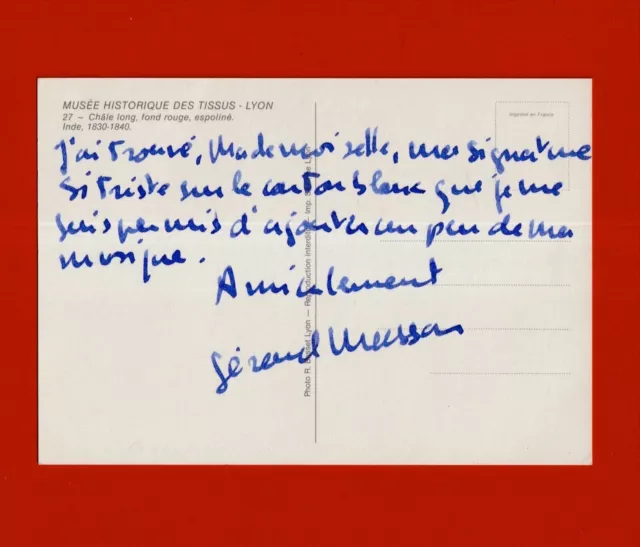 MUSÉE HISTORIQUE DES TISSUS - LYON
27 — Châle long, fond rouge, espoliné.
Inde, 1830-1840.
Imprimé en France
J'ai trouvé, Mademoiselle, ma signature
si triste sur le carton blanc que je me
suis permis d'ajouter un peu de ma
musique.
Amicalement
Gérard Masson
Photo R. Lyon — Reproduction interdite. Imp.